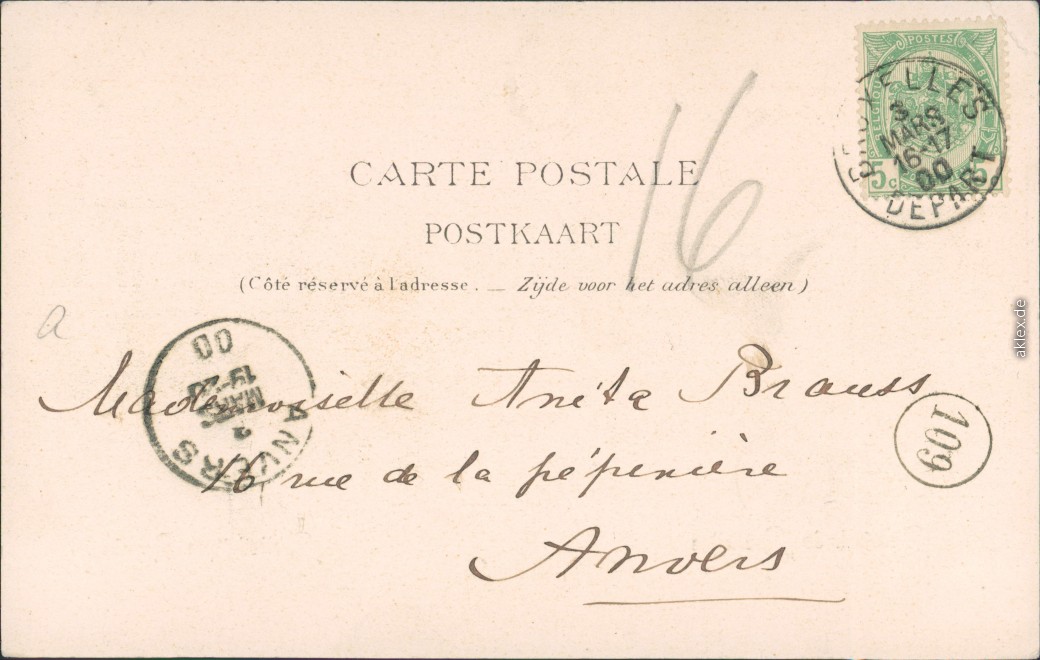 POSTES
BELGIQUE
5c 5
BRUXELLES
3
MARS
16-17
00
DEPART
16
CARTE POSTALE
POSTKAART
(Côté réservé à l'adresse. — Zijde voor het adres alleen)
a
ANVERS
MARS
19-20
00
Mademoiselle Anita Brauss
109
16 rue de la pépinière
Anvers
aklex.de